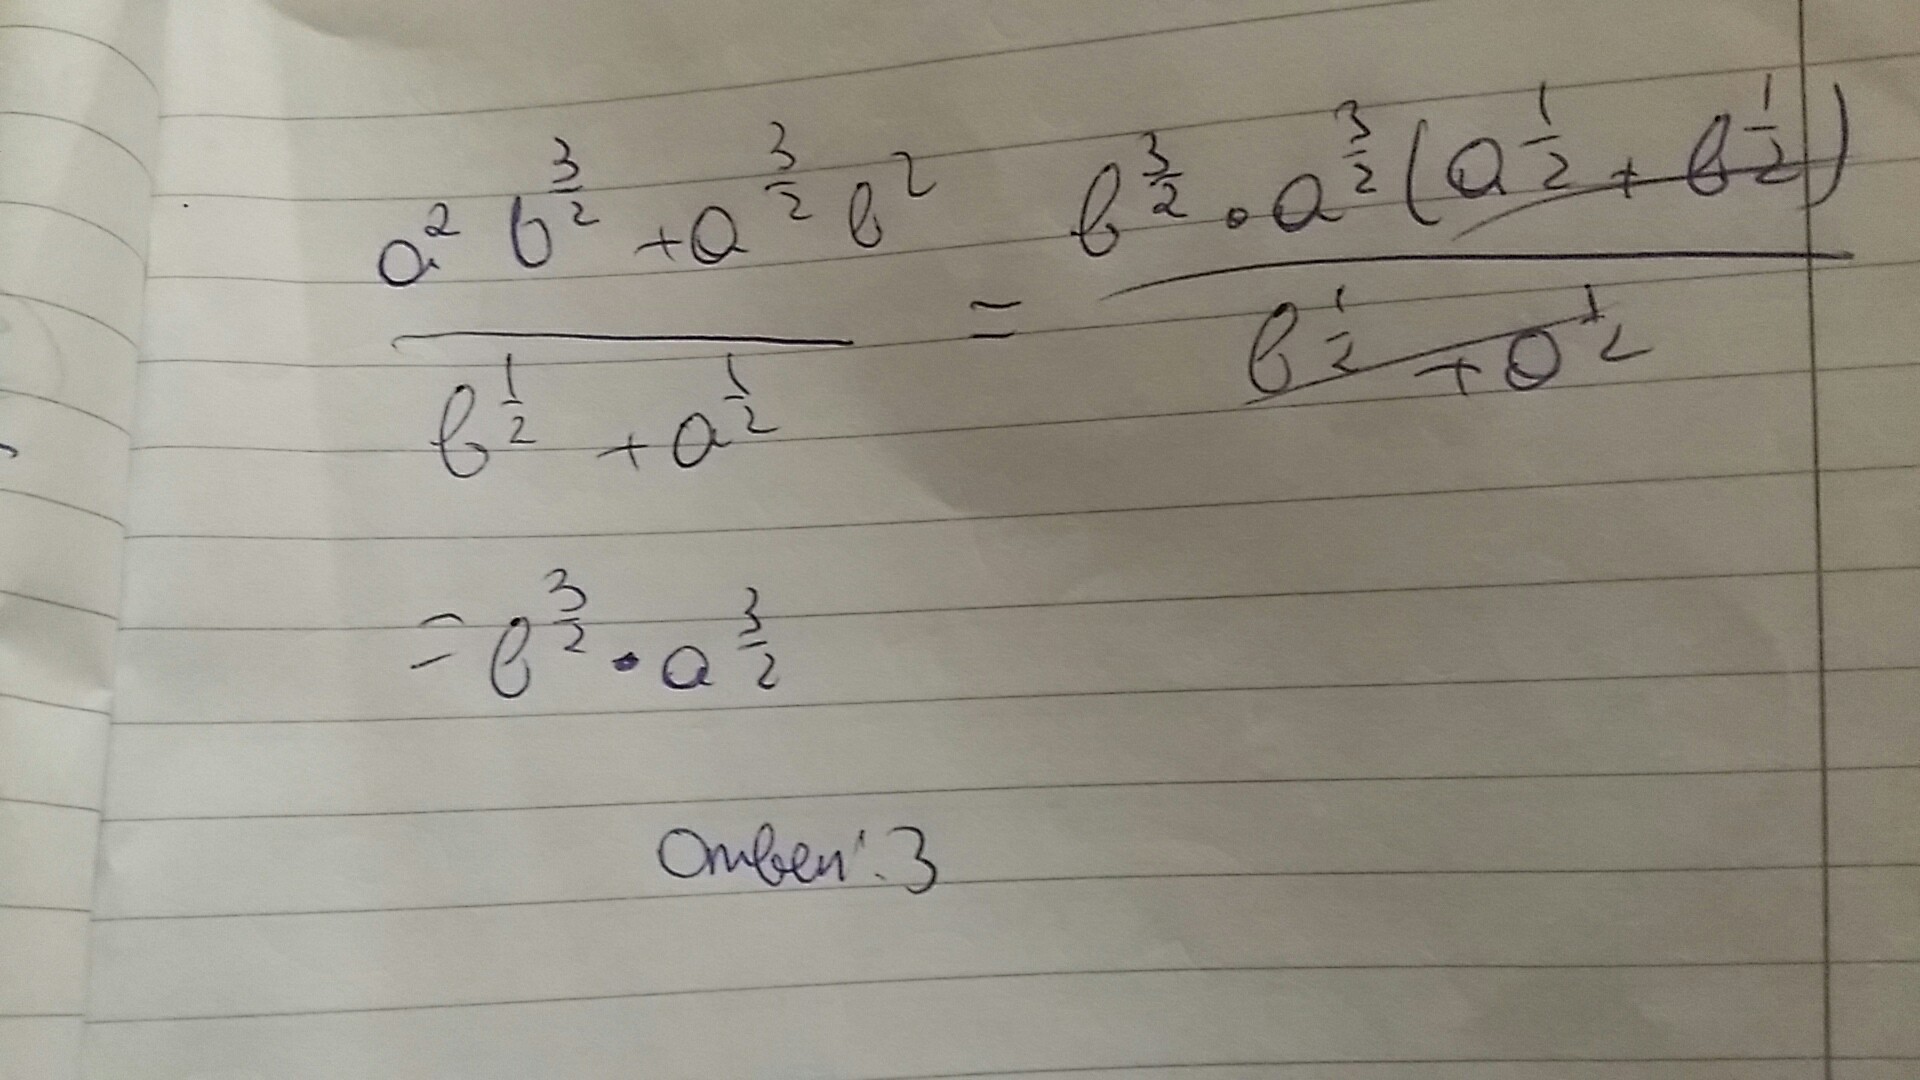 (a^2 b^{3/2} + a^{3/2} b^2) / (b^{1/2} + a^{1/2}) = (b^{3/2} · a^{3/2} (a^{1/2} + b^{1/2})) / (b^{1/2} + a^{1/2})
= b^{3/2} · a^{3/2}
Ответ: 3